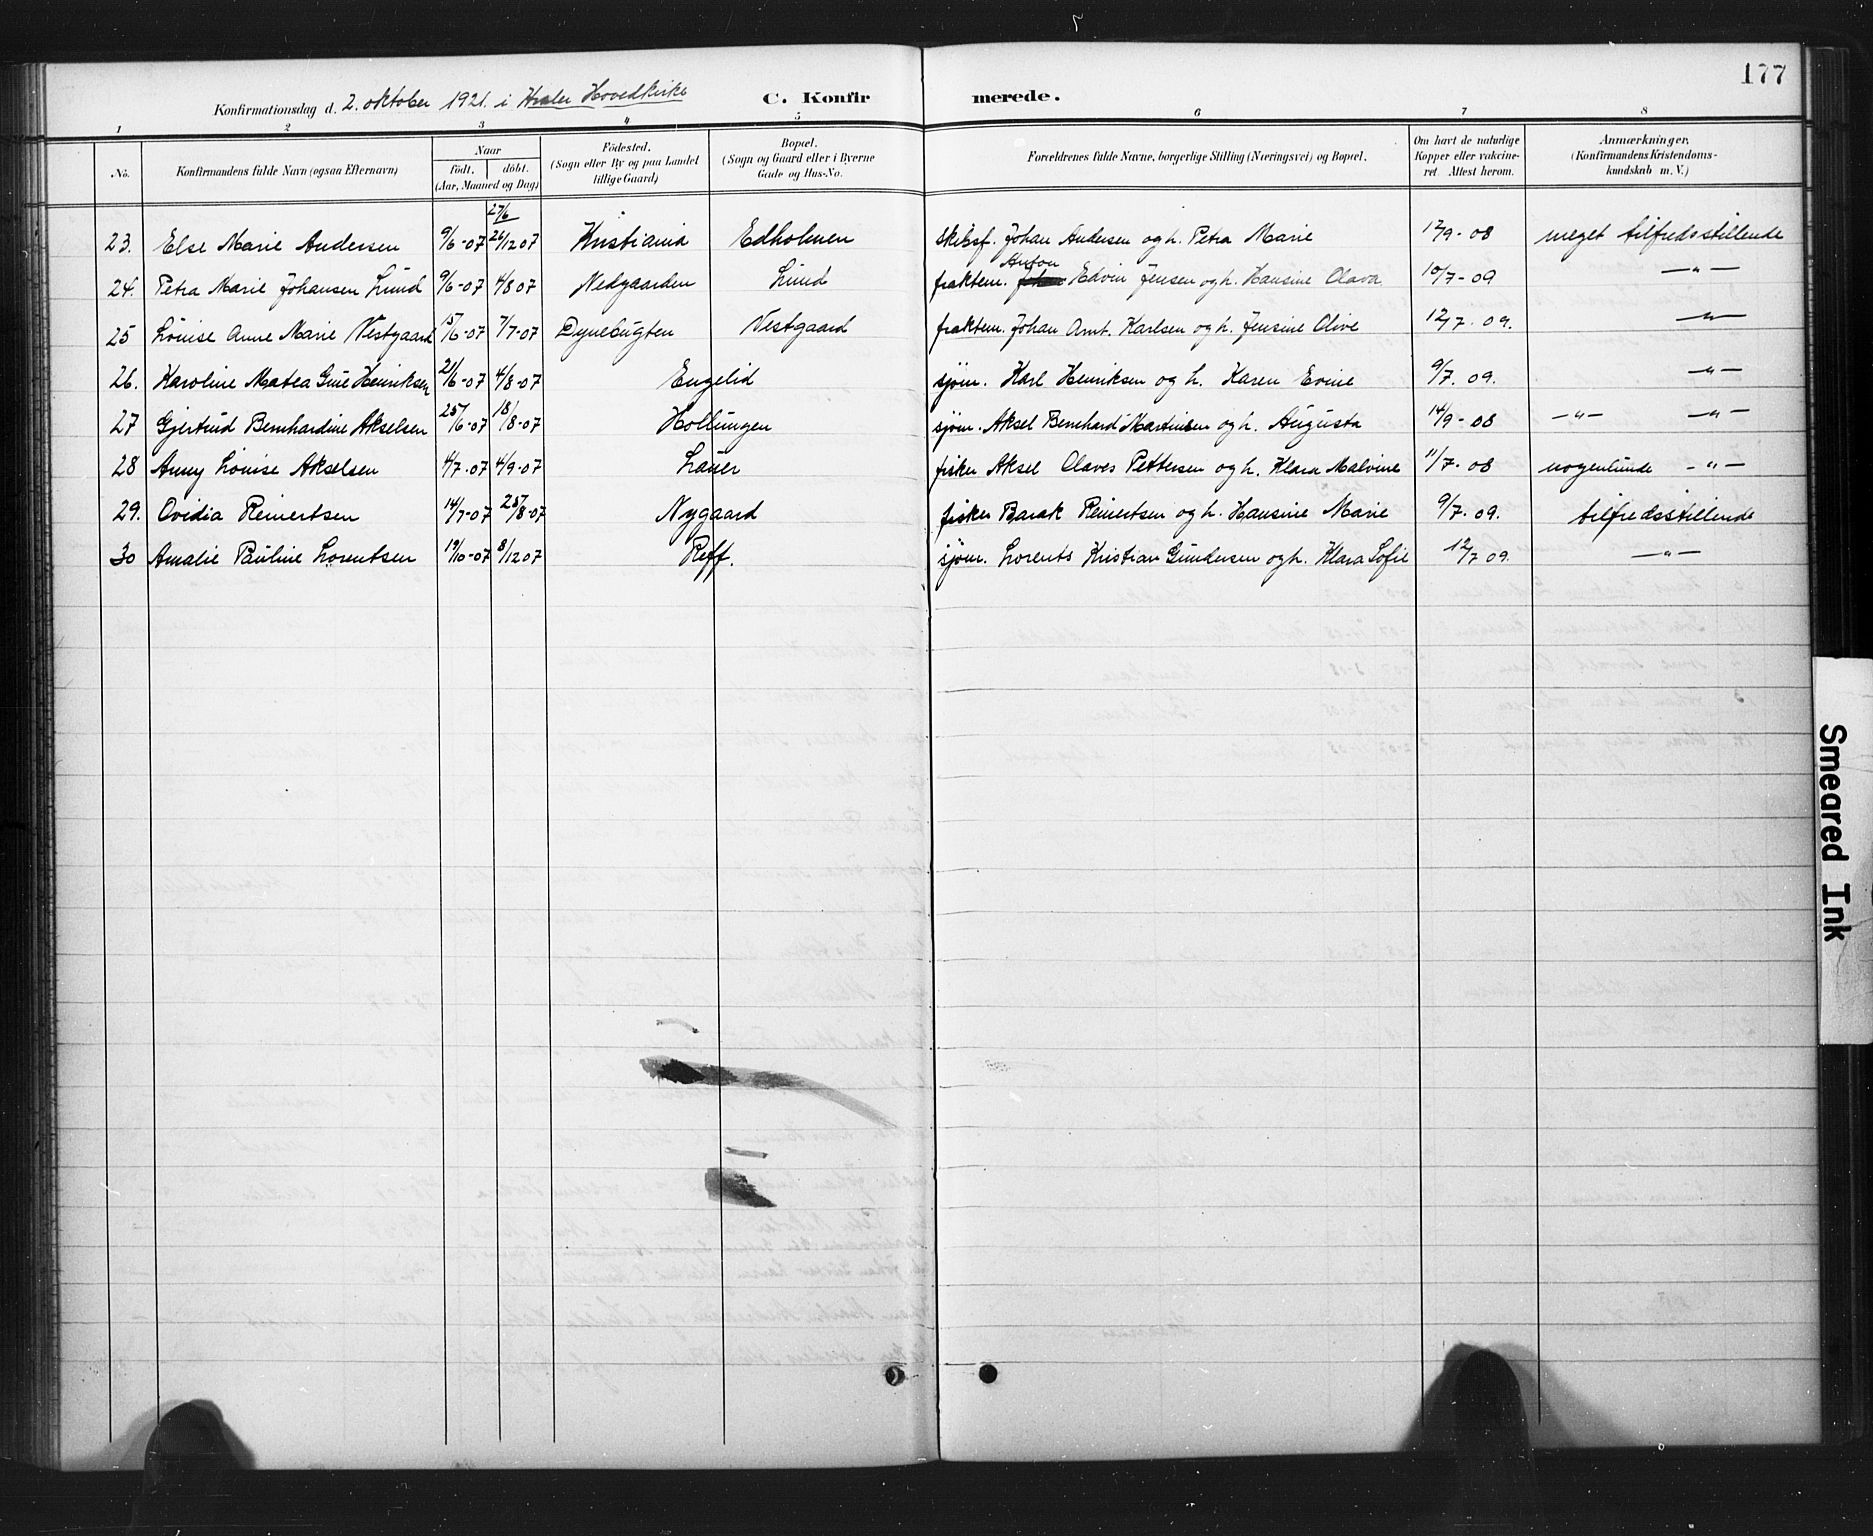 177
Konfirmationsdag d. 2. oktober 1921. i Hvaler Hovedkirke C. Konfirmerede.
1 2 3 4 5 6 7 8
No. Konfirmandens fulde Navn (ogsaa Efternavn) Naar födt. döbt. (Aar, Maaned og Dag) Födested. (Sogn eller By og paa Landet tillige Gaard) Bopæl. (Sogn og Gaard eller i Byerne Gade og Hus-No. Forældrenes fulde Navne, borgerlige Stilling (Næringsvei) og Bopæl. Om havt de naturlige Kopper eller vakcineret. Attest herom. Anmærkninger. (Konfirmandens Kristendomskundskab m. V.)
27/6
23. Else Marie Andersen 9/6-07 26/12 07 Kristiania Edholmen skibsf. Johan Andersen og h. Petra Marie 17/9-08 meget tilfredsstillende
Anton
24. Petra Marie Johansen Lund 9/6-07 4/8 07 Nedgaarden Lund fraktem. Edvin Jensen og h. Hansine Olava 10/7-09 —"—
25 Louise Anne Marie Vestgaard 15/6-07 7/7-07 Dynebugten Vestgaard fraktem. Johan Amt. Karlsen og h. Jensine Olive 12/7. 09. —"—
26. Karoline Matea Gine Henriksen 21/6-07 4/8-07 Engelid sjøm. Karl Henriksen og h. Karen Evine 9/7. 09. —"—
27 Gjertrud Bernhardine Akselsen 25/6-07 18/8-07 Hollungen sjøm. Aksel Bernhard Martinsen og h. Augusta 14/9-08 —"— —"—
28 Anny Louise Akselsen 4/7-07 4/9-07 Lauer fisker Aksel Olaves Pettersen og h. Klara Malvine 11/7-08 nogenlunde —"—
29. Ovidia Reinertsen 14/7-07 25/8-07 Nygaard fisker Barak Reinertsen og h. Hansine Marie 9/7-09. tilfredsstillende
30 Amalie Pauline Lorentsen 19/10-07 8/12 07 Reff. sjøm. Lorents Kristian Gundersen og h. Klara Sofie 12/7 09. —"—
Smeared Ink